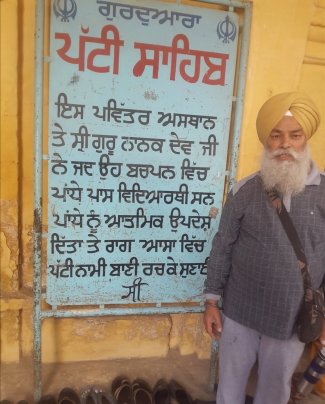 ਗੁਰਦੁਆਰਾ
ਪੱਟੀ ਸਾਹਿਬ
ਇਸ ਪਵਿੱਤਰ ਅਸਥਾਨ
ਤੇ ਸ਼੍ਰੀ ਗੁਰੂ ਨਾਨਕ ਦੇਵ ਜੀ
ਨੇ ਜਦ ਉਹ ਬਚਪਨ ਵਿੱਚ
ਪਾਂਧੇ ਪਾਸ ਵਿਦਿਆਰਥੀ ਸਨ
ਪਾਂਧੇ ਨੂੰ ਆਤਮਿਕ ਉਪਦੇਸ਼
ਦਿੱਤਾ ਤੇ ਰਾਗ ਆਸਾ ਵਿੱਚ
ਪੱਟੀ ਨਾਮੀ ਬਾਣੀ ਰਚ ਕੇ ਸੁਣਾਈ
ਸੀ